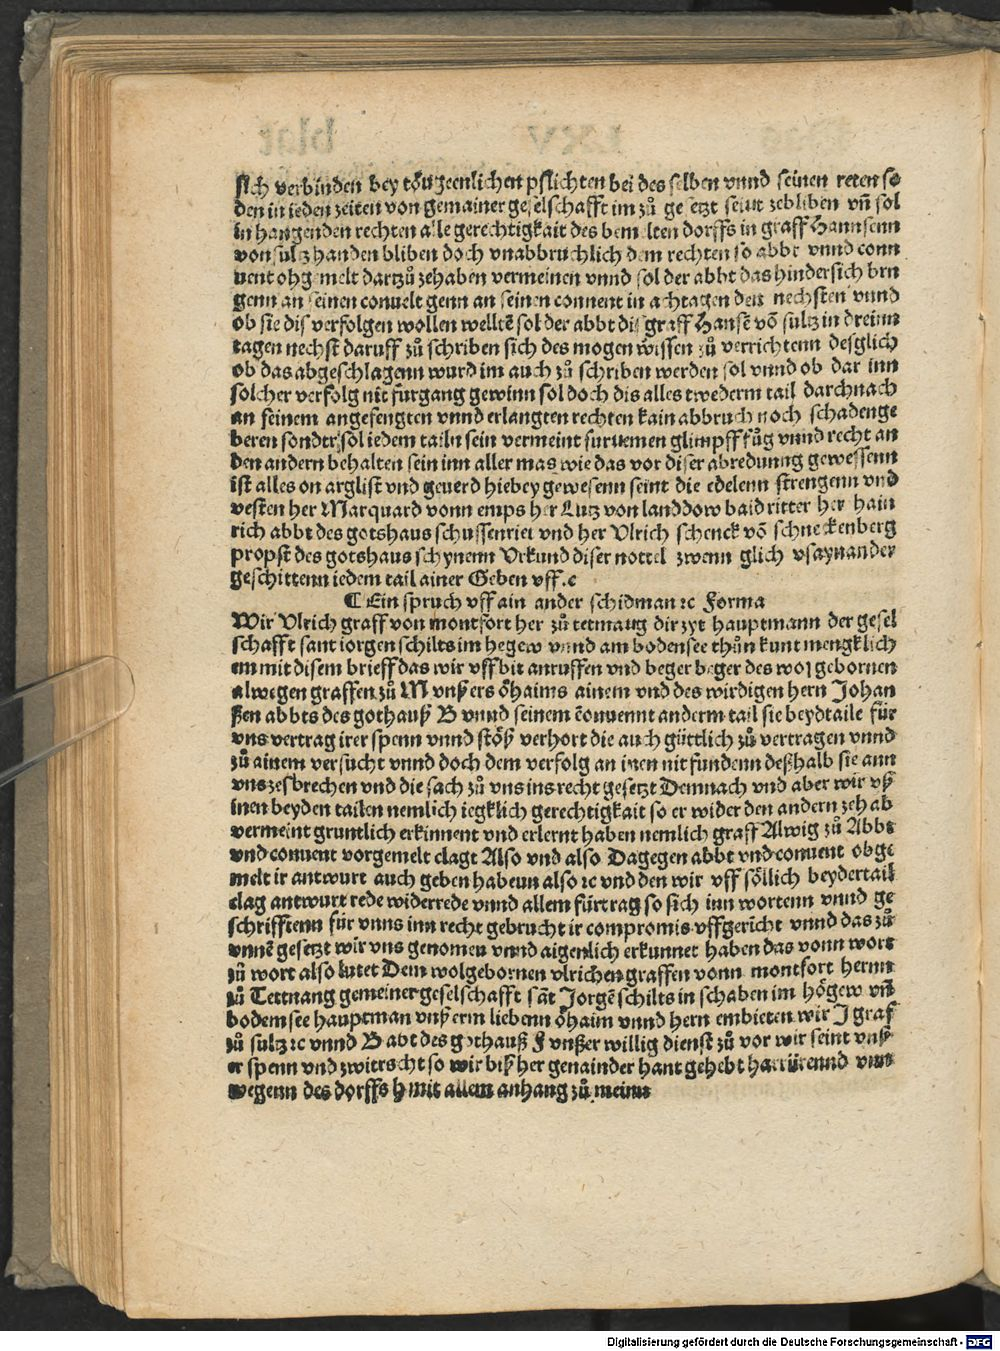 sich verbinden bey töngeenlichen pflichten bei des selben vnnd seinen reten so
den in ieden zeiten von gemainer geselschafft im zů ge setzt seint zebliben vñ sol
in hangenden rechten alle gerechtigkait des bemelten dorffs in graff Hannsenn
von sultz handen bliben doch vnabbruchlich dem rechten so abbt vnnd conn
uent obgemelt dartzů zehaben vermeinen vnnd sol der abbt das hindersich brn
genn an seinen conuelt genn an seinen connent in achtagen den nechsten vnnd
ob sie dis verfolgen wollen welltē sol der abbt dis graff Hansē vō sultz in dreinn
tagen nechst daruff zů schriben sich des mogen wissen zů verrichtenn desglich
ob das abgeschlagenn wurd im auch zů schriben werden sol vnnd ob dar inn
solcher verfolg nit furgang gewinn sol doch dis alles twederm tail darchnach
an seinem angefengten vnnd erlangten rechten kain abbruch noch schadenge
beren sondtr sol iedem tailn sein vermeint furuemen glimpff fůg vnnd recht an
den andern behalten sein inn aller mas wie das vor diser abredunng gewessenn
ist alles on arglist vnd geuerd hiebey gewesenn seint die edelenn strengenn vnd
vesten her Marquard vonn emps her Lutz von landdow baid ritter her hain
rich abbt des gotshaus schussenriet vnd her Vlrich schenck vō schneckenberg
propst des gotshaus schynenn Vrkund diser nottel zwenn glich vsaynander
geschittenn iedem tail ainer Geben vff.c
¶ Ein spruch vff ain ander schidman ꝛc Forma
Wir Vlrich graff von montfort her zů tetmaug dir zyt hauptmann der gesel
schafft sant iorgen schilts im hegew vnnd am bodensee thůn kunt mengklich
em mit disem brieff das wir vff bit anruffen vnd beger beger des wolgebornen
alwegen graffen zů M vnßers öhaims ainem vnd des wirdigen hern Johan
ßen abbts des gothauß B vnnd seinem cōnuennt anderm tail sie beydtaile für
vns vertrag irer spenn vnnd stöß verhort die auch güttlich zů vertragen vnnd
zů ainem versucht vnnd doch dem verfolg an inen nit fundenn deßhalb sie ann
vns zesbrechen vnd die sach zů vns ins recht gesetzt Demnach vnd aber wir vß
inen beyden tailen nemlich iegklich gerechtigkait so er wider den andern zehab
vermeint gruntlich erkinnent vnd erlernt haben nemlich graff Alwig zů Abbt
vnd conuent vorgemelt clagt Also vnd also Dagegen abbt vnd conuent obge
melt ir antwurt auch geben habeun also ꝛc vnd den wir vff söllich beydertail
clag antwurt rede widerrede vnnd allem fürtrag so sich inn wortenn vnnd ge
schrifftenn für vnns inn recht gebrucht ir compromis vffgericht vnnd das zů
vnnē gesetzt wir vns genomen vnnd aigenlich erkunnet haben das vonn wort
zů wort also lutet Dem wolgebornen vlrichen graffen vonn montfort hernn
zů Tettnang gemeiner geselschafft sāt Jorgē schilts in schaben im högew vñ
bodem see hauptman vnßerm liebenn öhaim vnnd hern embieten wir J graf
zů sultz ꝛc vnnd B abt des gothauß F vnßer willig dienst zů vor wir seint vnß
er spenn vnd zwitrscht so wir biß her genainder hant gehebt harrürennd vnn
wegenn des dorffs h mit allem anhang zů meinn
Digitalisierung gefördert durch die Deutsche Forschungsgemeinschaft - DFG